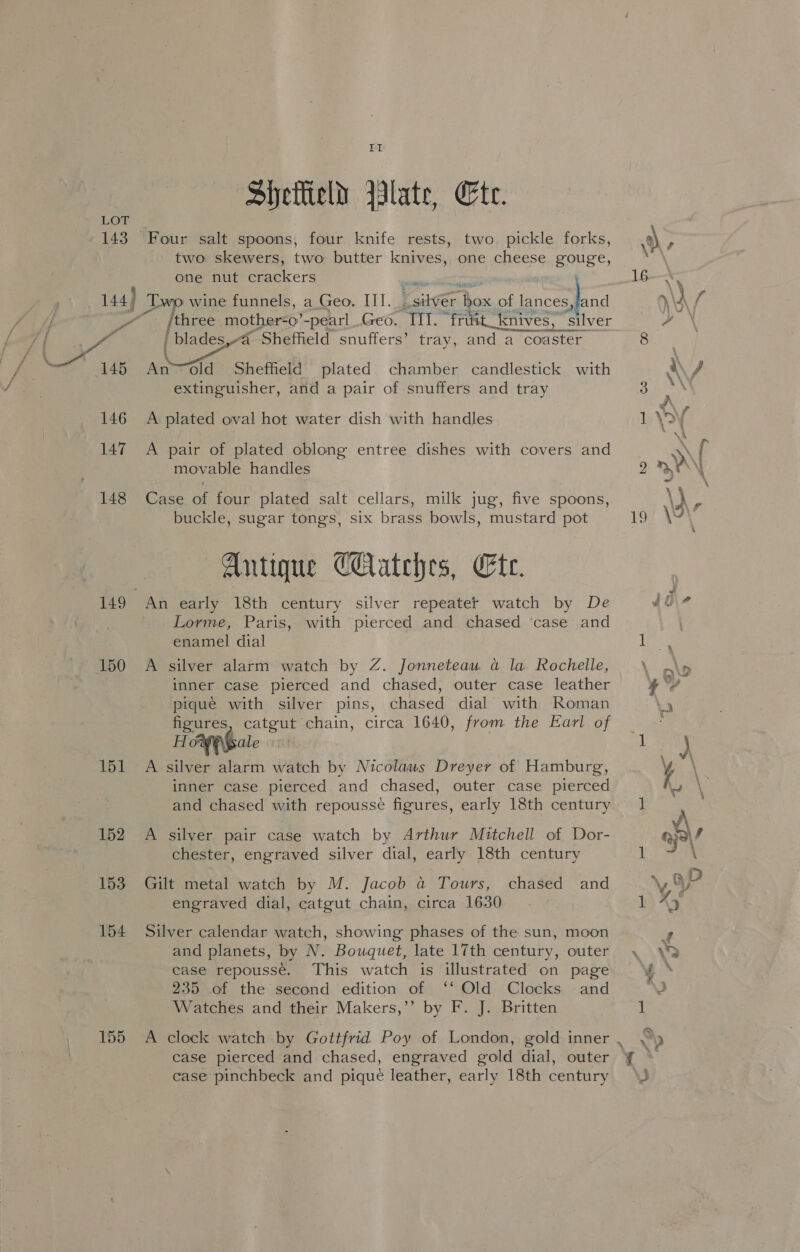 11
Sheffield Plate, Etc.
LOT
143 Four salt spoons, four knife rests, two pickle forks,
two skewers, two butter knives, one cheese gouge,
one nut crackers 16
144 Two wine funnels, a Geo. III. silver box of lances, and
three mother-o'-pearl Geo. III. fruit knives, silver
blades, a Sheffield snuffers' tray, and a coaster 8
145 An old Sheffield plated chamber candlestick with
extinguisher, and a pair of snuffers and tray 3
146 A plated oval hot water dish with handles 1
147 A pair of plated oblong entree dishes with covers and
movable handles 2
148 Case of four plated salt cellars, milk jug, five spoons,
buckle, sugar tongs, six brass bowls, mustard pot 19
Antique Watches, Etc.
149 An early 18th century silver repeater watch by De
Lorme, Paris, with pierced and chased case and
enamel dial 1
150 A silver alarm watch by Z. Jonneteau à la Rochelle,
inner case pierced and chased, outer case leather
piqué with silver pins, chased dial with Roman
figures, catgut chain, circa 1640, from the Earl of
1
151 A silver alarm watch by Nicolaus Dreyer of Hamburg,
inner case pierced and chased, outer case pierced
and chased with repoussé figures, early 18th century 1
152 A silver pair case watch by Arthur Mitchell of Dor-
chester, engraved silver dial, early 18th century 1
153 Gilt metal watch by M. Jacob à Tours, chased and
engraved dial, catgut chain, circa 1630 1
154 Silver calendar watch, showing phases of the sun, moon
and planets, by N. Bouquet, late 17th century, outer
case repoussé. This watch is illustrated on page
235 of the second edition of "Old Clocks and
Watches and their Makers," by F. J. Britten 1
155 A clock watch by Gottfrid Poy of London, gold inner
case pierced and chased, engraved gold dial, outer
case pinchbeck and piqué leather, early 18th century